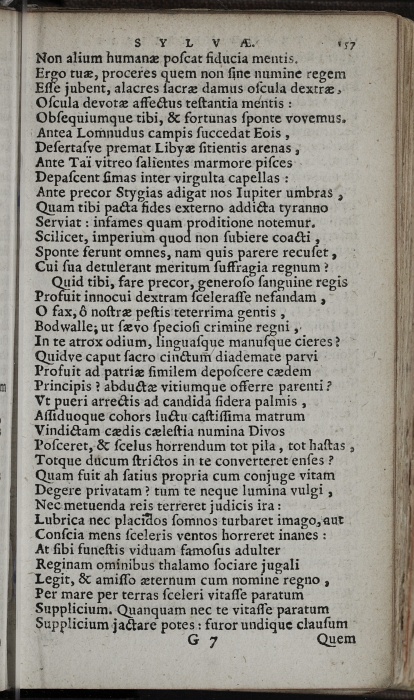 SYLVÆ. 157
Non alium humanæ poſcat fiducia mentis.
Ergo tuæ, proceres quem non ſine numine regem
Eſſe jubent, alacres ſacræ damus oſcula dextræ,
Oſcula devotæ affectus teſtantia mentis :
Obſequiumque tibi, & fortunas ſponte vovemus.
Antea Lomnudus campis ſuccedat Eois,
Deſertaſve premat Libyæ ſitientis arenas,
Ante Taï vitreo ſalientes marmore piſces
Depaſcent ſimas inter virgulta capellas :
Ante precor Stygias adigat nos Iupiter umbras,
Quam tibi pacta fides externo addicta tyranno
Serviat : infames quam proditione notemur.
Scilicet, imperium quod non ſubiere coacti,
Sponte ferunt omnes, nam quis parere recuſet,
Cui ſua detulerant meritum ſuffragia regnum ?
Quid tibi, fare precor, generoſo ſanguine regis
Profuit innocui dextram ſceleraſſe nefandam,
O fax, ô noſtræ peſtis teterrima gentis,
Bodwalle; ut ſævo ſpecioſi crimine regni,
In te atrox odium, linguaſque manuſque cieres ?
Quidve caput ſacro cinctum diademate parvi
Profuit ad patriæ ſimilem depoſcere cædem
Principis ? abductæ vitiumque offerre parenti ?
Vt pueri arrectis ad candida ſidera palmis,
Aſſiduoque cohors luctu caſtiſſima matrum
Vindictam cædis cæleſtia numina Divos
Poſceret, & ſcelus horrendum tot pila, tot haſtas,
Totque ducum ſtrictos in te converteret enſes ?
Quam fuit ah ſatius propria cum conjuge vitam
Degere privatam ? tum te neque lumina vulgi,
Nec metuenda reis terreret judicis ira :
Lubrica nec placidos ſomnos turbaret imago, aut
Conſcia mens ſceleris ventos horreret inanes :
At ſibi funeſtis viduam famoſus adulter
Reginam ominibus thalamo ſociare jugali
Legit, & amiſſo æternum cum nomine regno,
Per mare per terras ſceleri vitaſſe paratum
Supplicium. Quanquam nec te vitaſſe paratum
Supplicium jactare potes : furor undique clauſum
G 7 Quem